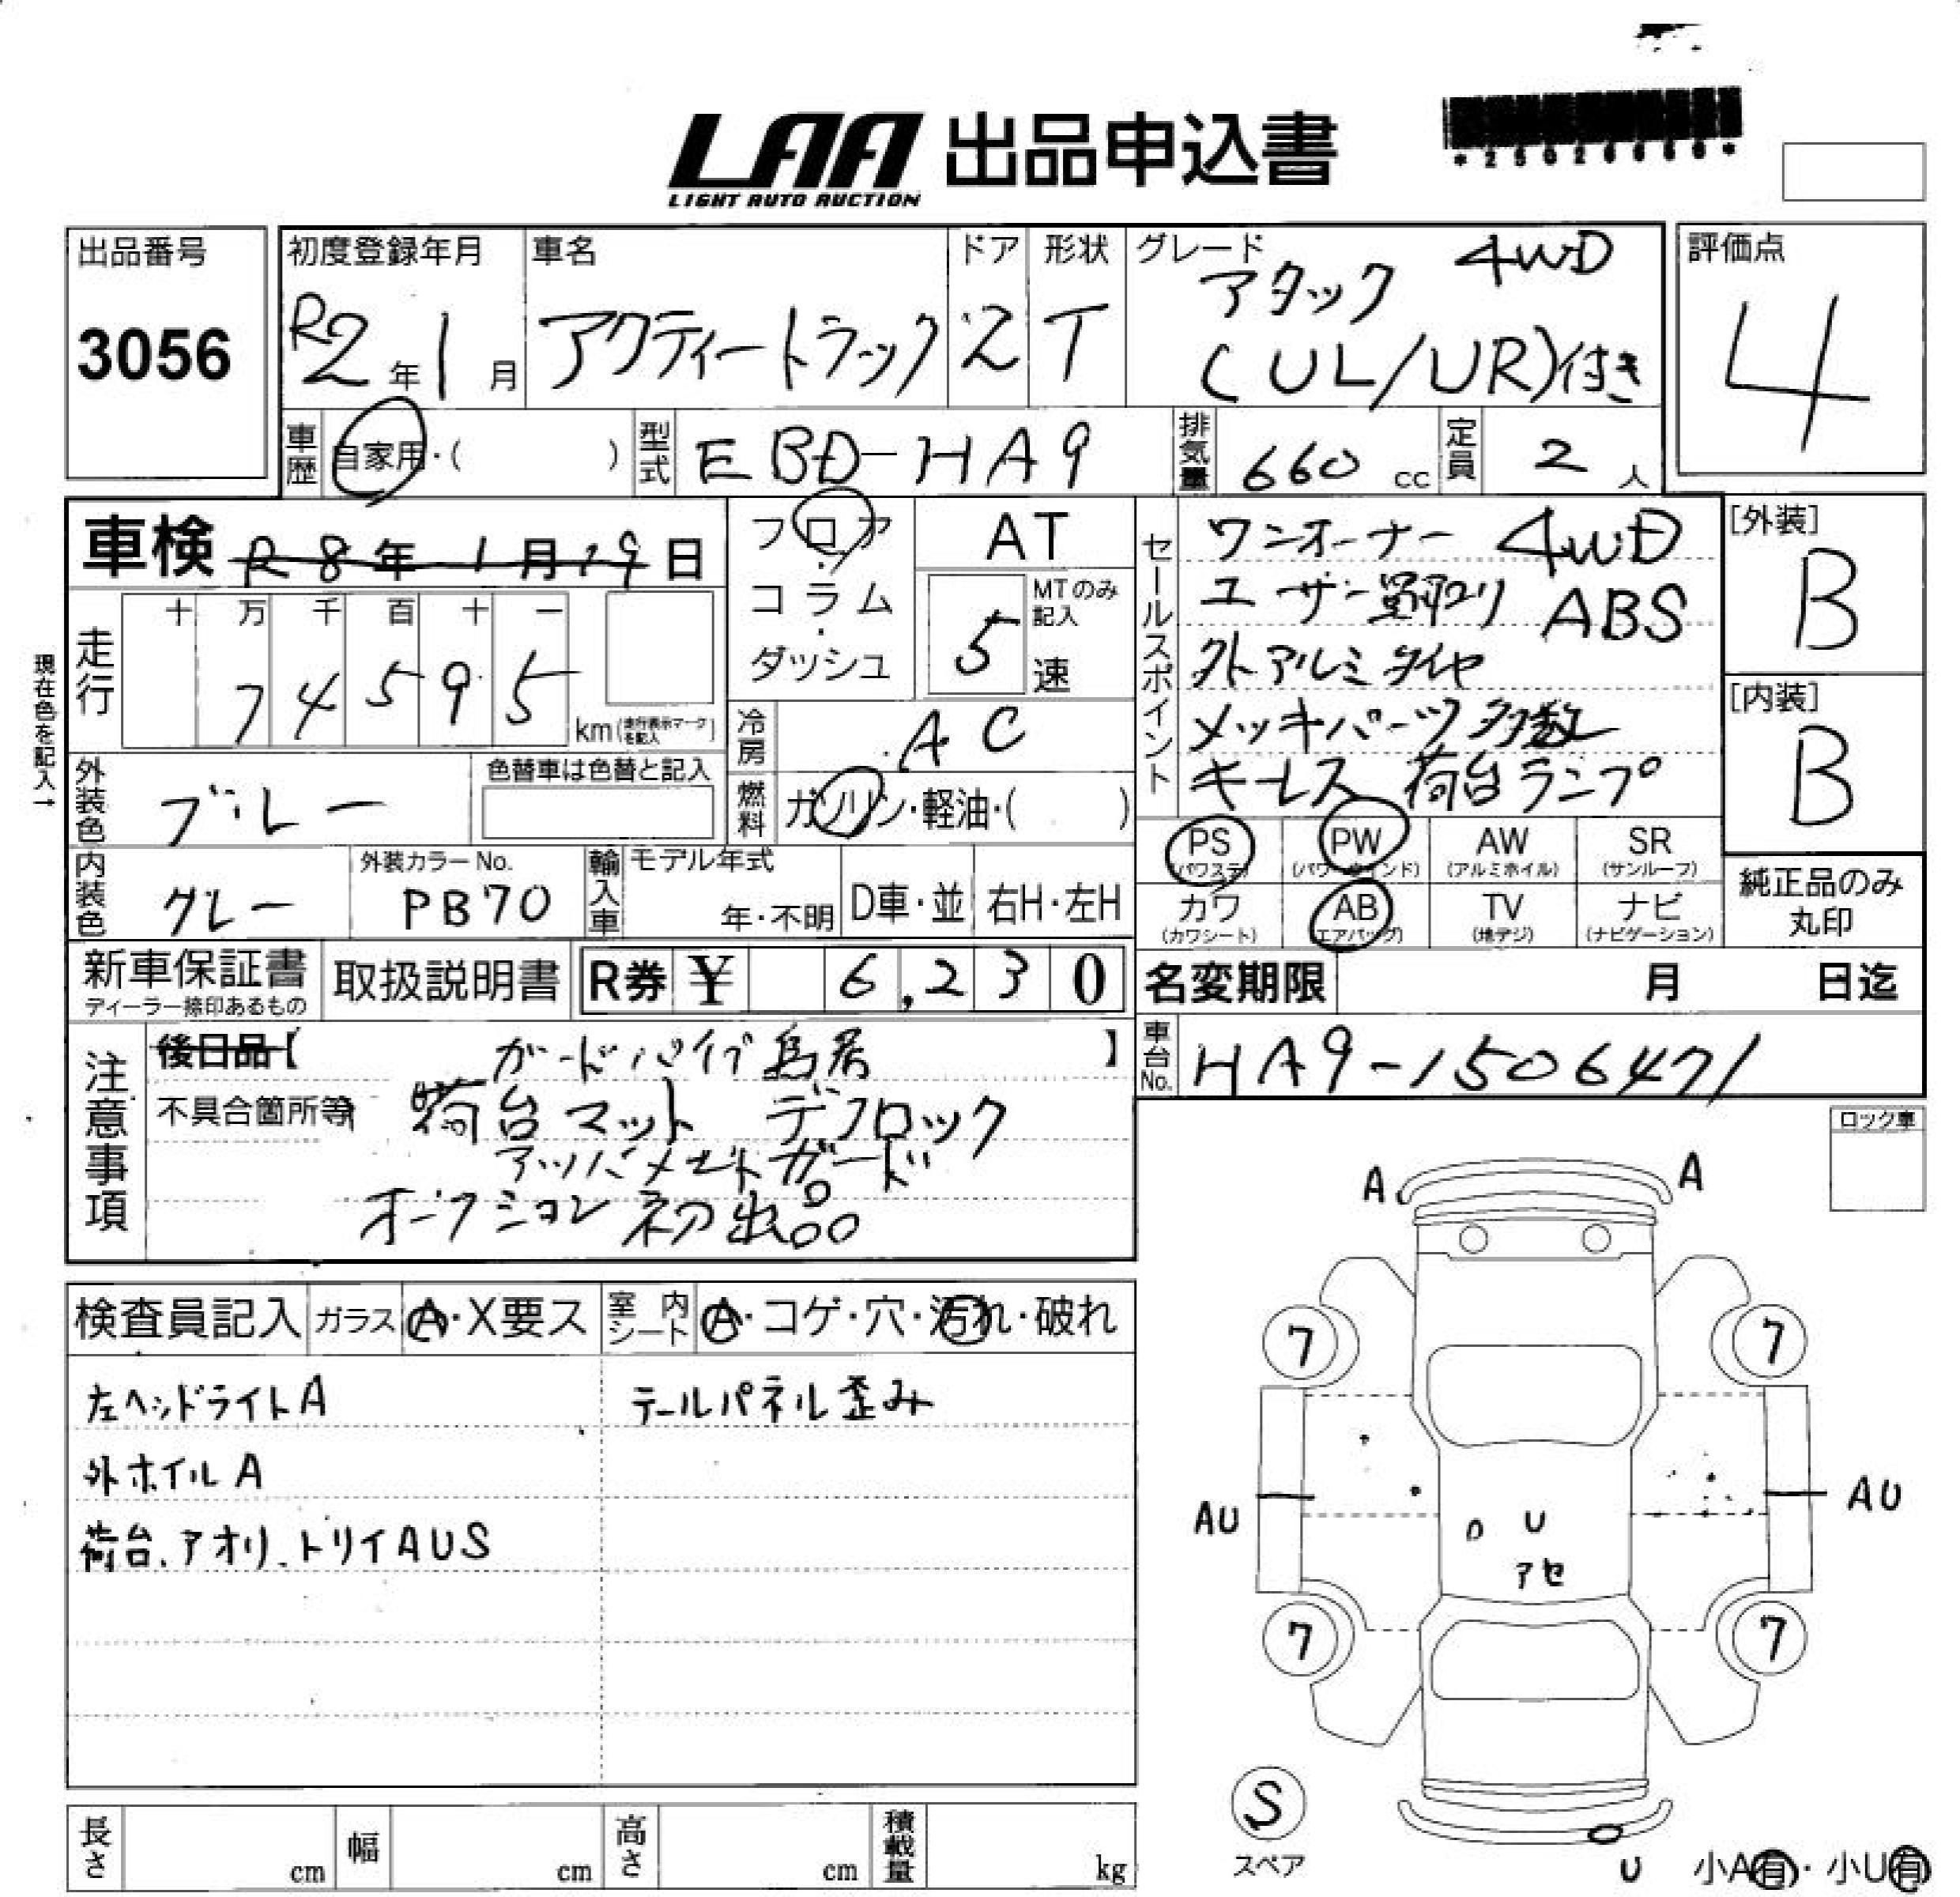 LAA 出品申込書
LIGHT AUTO AUCTION
出品番号
3056
初度登録年月
R2年1月
車名
アクティートラック
ドア
2
形状
T
グレード
アタック 4WD
(UL/UR)付き
評価点
4
車歴
自家用・( )
型式
EBD-HA9
排気量
660 cc
定員
2 人
車検 R8年1月19日
フロア・コラム・ダッシュ
AT
MTのみ記入
5 速
走行
十 万 千 百 十 一
7 4 5 9 5
km(走行表示マークを記入)
現在色を記入→
冷房
AC
燃料
ガソリン・軽油・( )
外装色
ブルー
色替車は色替と記入
内装色
グレー
外装カラーNo.
PB70
輸入車
モデル年式
年・不明
D車・並
右H・左H
セールスポイント
ワンオーナー 4WD
ユーザー買取り ABS
外アルミタイヤ
メッキパーツ多数
キーレス 荷台ランプ
[外装]
B
[内装]
B
PS (パワステ)
PW (パワーウインド)
AW (アルミホイル)
SR (サンルーフ)
カワ (カワシート)
AB (エアバッグ)
TV (地デジ)
ナビ (ナビゲーション)
純正品のみ
丸印
新車保証書
ディーラー捺印あるもの
取扱説明書
R券 ¥ 6,230
名変期限 月 日迄
車台No.
HA9-1506471
注意事項
後日品【 ガードパイプ鳥居 】
不具合箇所等 荷台マット デフロック
ガード
オークション初出品
ロック車
検査員記入
ガラス
A・X要ス
室内シート
A・コゲ・穴・汚れ・破れ
左ヘッドライトA
テールパネル歪み
外ホイルA
荷台、アオリ、トリイAUS
A A
7 7
AU AU
U
アセ
7 7
S
スペア
U
小A有・小U有
長さ cm
幅 cm
高さ cm
積載量 kg